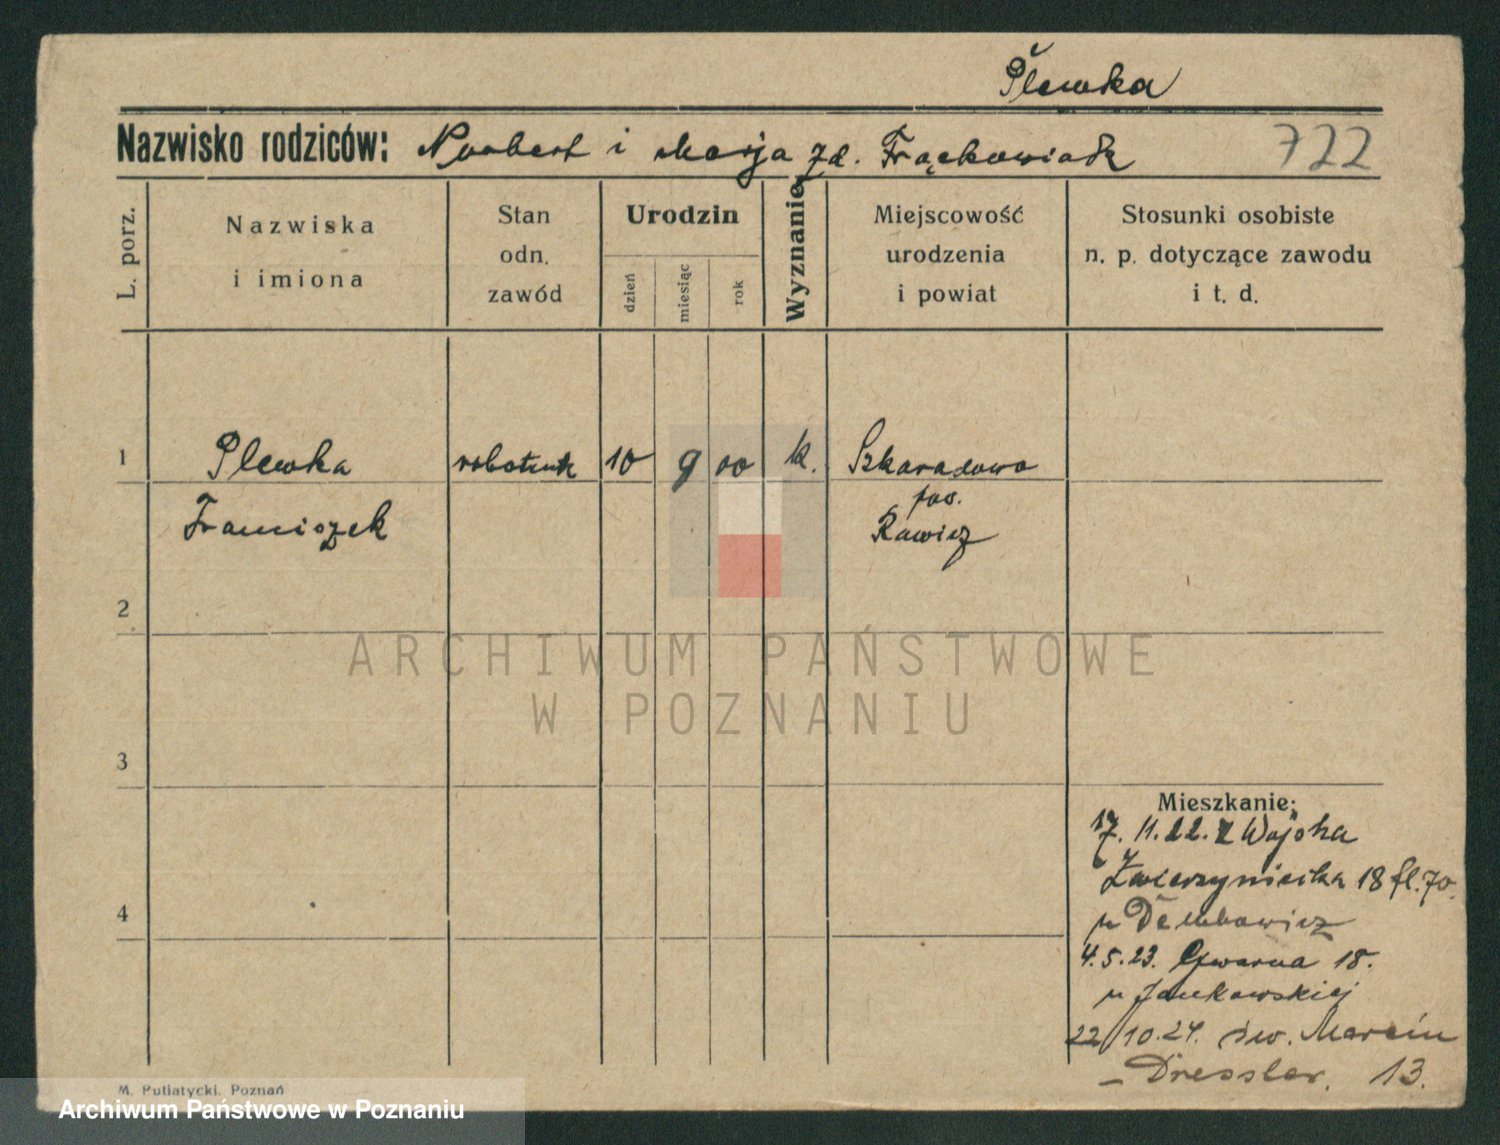 Plewka
Nazwisko rodziców: Norbert i Marja zd. Frąckowiak 722
L. porz.
Nazwiska
i imiona
Stan
odn.
zawód
Urodzin
dzień
miesiąc
rok
Wyznanie
Miejscowość
urodzenia
i powiat
Stosunki osobiste
n. p. dotyczące zawodu
i t. d.
1 Plewka robotnik 10 9 00 k. Szkaradowo
pow.
Franciszek Rawicz
2
3
4
Mieszkanie:
17. 11. 22. z Wojska
Zwierzyniecka 18 fl. 70.
u Dembowicz
4. 5. 23. 18.
u Jankowskiej
22/10.24. św. Marcin
– Dressler. 13.
M. Putiatycki. Poznań
ARCHIWUM PAŃSTWOWE
W POZNANIU
Archiwum Państwowe w Poznaniu